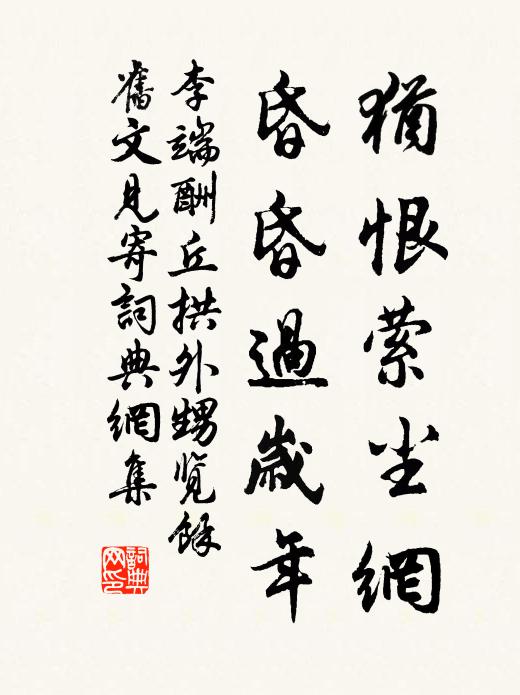 猶恨縈塵網
昏昏過歲年
李端酬丘拱外甥覽餘
舊文見寄詞典網集
詞典網印